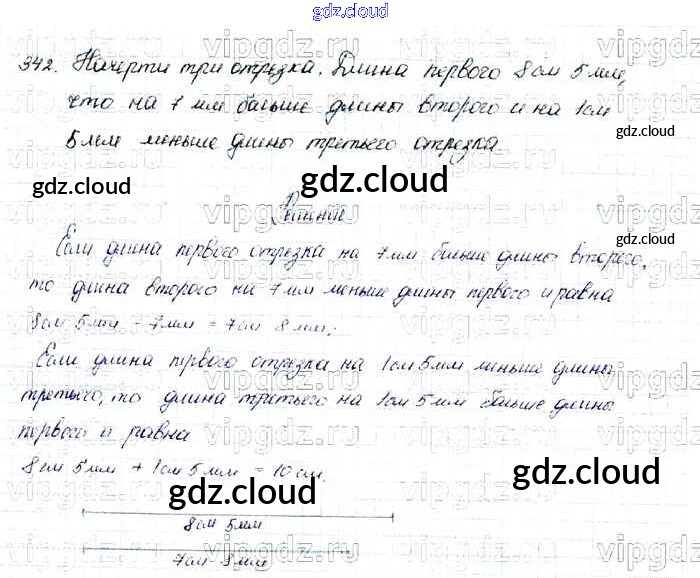 gdz.cloud
342. Начерти три отрезка. Длина первого 8 см 5 мм,
что на 7 мм больше длины второго и на 1 см
5 мм меньше длины третьего отрезка.
Решение
Если длина первого отрезка на 7 мм больше длины второго,
то длина второго на 7 мм меньше длины первого и равна
8 см 5 мм - 7 мм = 7 см 8 мм;
Если длина первого отрезка на 1 см 5 мм меньше длины
третьего, то длина третьего на 1 см 5 мм больше длины
первого и равна
8 см 5 мм + 1 см 5 мм = 10 см.
8 см 5 мм
7 см 8 мм